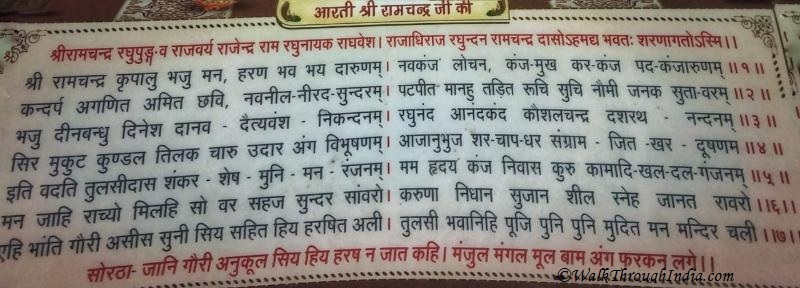 आरती श्री रामचन्द्र जी की
श्रीरामचन्द्र रघुपुङ्ग-व राजवर्य राजेन्द्र राम रघुनायक राघवेश। राजाधिराज रघुन्दन रामचन्द्र दासोऽहमद्य भवतः शरणागतोऽस्मि।।
श्री रामचन्द्र कृपालु भजु मन, हरण भव भय दारुणम्। नवकंज लोचन, कंज-मुख कर-कंज पद-कंजारुणम् ॥१॥
कन्दर्प अगणित अमित छवि, नवनील-नीरद-सुन्दरम्। पटपीत मानहु तड़ित रूचि सुचि नौमी जनक सुता-वरम् ॥२॥
भजु दीनबन्धु दिनेश दानव - दैत्यवंश - निकन्दनम्। रघुनंद आनदकंद कौशलचन्द्र दशरथ - नन्दनम् ॥३॥
सिर मुकुट कुण्डल तिलक चारु उदार अंग विभूषणम्। आजानुभुज शर-चाप-धर संग्राम - जित -खर - दूषणम ॥४॥
इति वदति तुलसीदास शंकर - शेष - मुनि - मन - रंजनम्। मम हृदय कंज निवास कुरु कामादि-खल-दल-गंजनम् ॥५॥
मन जाहि राच्यो मिलहि सो वर सहज सुन्दर सांवरो। करुणा निधान सुजान शील स्नेह जानत रावरो ॥६॥
एहि भांति गौरी असीस सुनी सिय सहित हिय हरषित अली। तुलसी भवानिहि पूजि पुनि पुनि मुदित मन मन्दिर चली ॥७॥
सोरठा- जानि गौरी अनुकूल सिय हिय हरष न जात कहि। मंजुल मंगल मूल बाम अंग फरकन लगे।।
©WalkThroughIndia.com